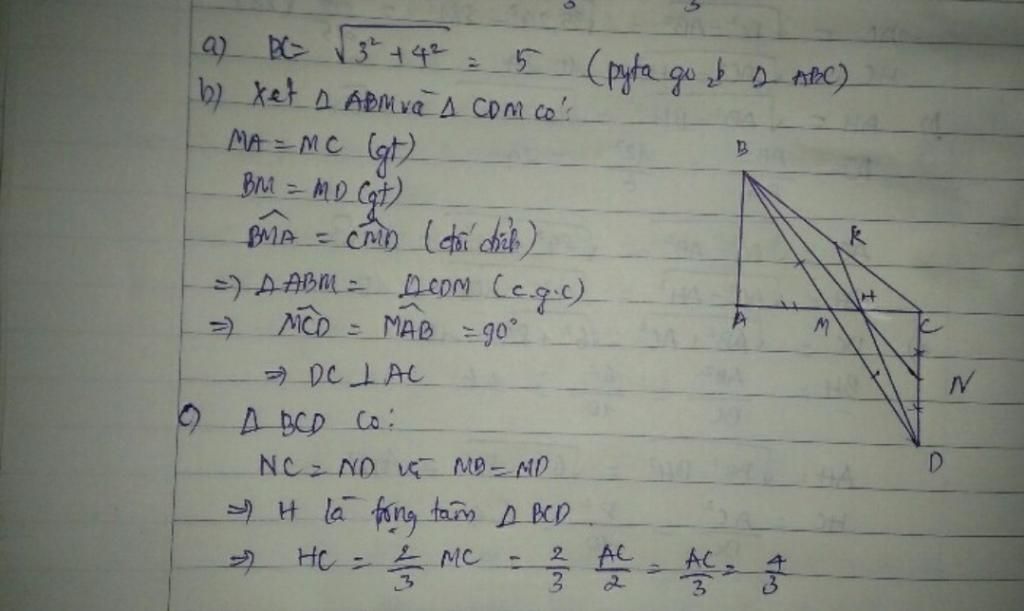 a) BC = √(3² + 4²) = 5 (pyta go Δ ABC)
b) Xét Δ ABM và Δ CDM có:
MA = MC (gt)
BM = MD (gt)
B̂MA = ĈMD (đối đỉnh)
=> Δ ABM = Δ CDM (c.g.c)
=> M̂CD = M̂AB = 90°
=> DC ⊥ AC
c) Δ BCD có:
NC = ND và MB = MD
=> H là trọng tâm Δ BCD
=> HC = 2/3 MC = 2/3 AC/2 = AC/3 = 4/3
B
K
A
M
H
C
N
D